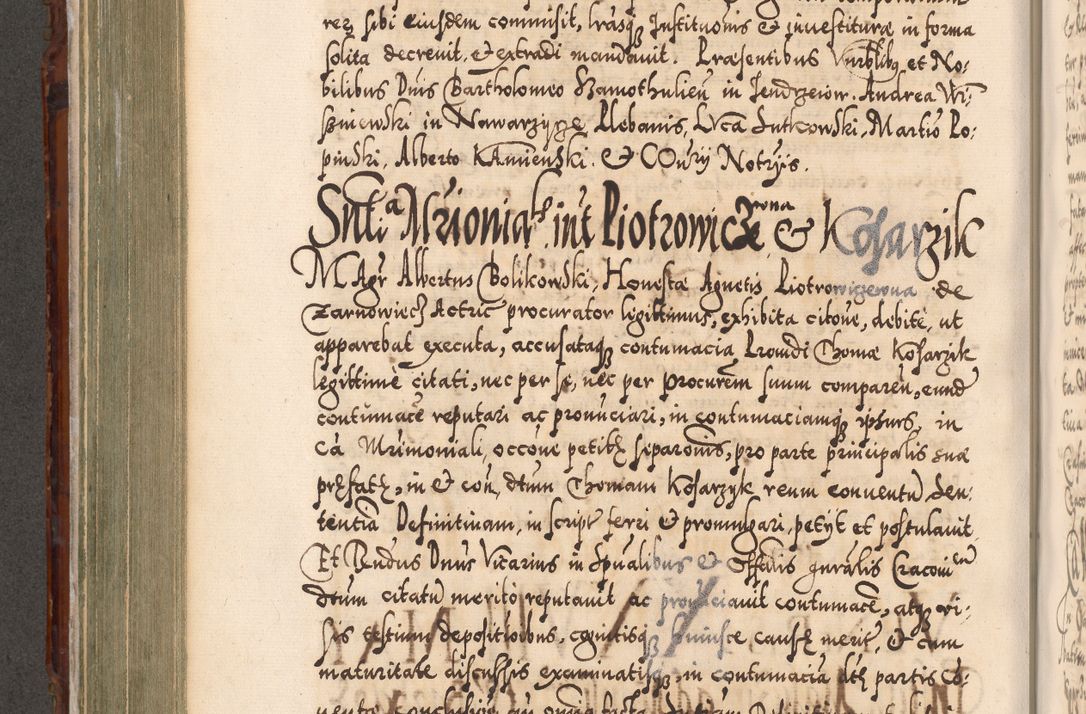 rez sibi eiusdem commisit, lrasq₃ Institutionis & inuestituræ in forma
solita decreuit, & extradi mandauit. Præsentibus Vnrblibq et No:
bilibus Dnis Bartholomeo Szamothulien in Jendrzeiow. Andrea Wi:
szniewski in Nawarzycze Plebanis, Luca Lutkowski, Martio Lo:
pinski, Alberto Kamienski. & COnrÿ Notrÿs.
Sntia Mrionialis int Piotrowiczowna & Kosarzik
MAgr Albertus Bolikowski, Honestæ Agnetis Piotrowiczewna de
Zarnowiecz Actric procurator legittimus, exhibita citone, debite, ut
apparebat executa, accusataq₃ contumacia Prouidi Thomæ Kosarzik
legittimè citati, nec per se, nec per procurem suum comparen, eund
contumacē reputari ac pronuciari, in contumaciamq₃ ipsius, in
Ca Mrimoniali, occone petitæ separonis, pro parte principalis suæ
præfatæ, in & con, dtum Thomam Kosarzyk reum conuentu Sen:
tentia Definitiuam, in script ferri & promulgari, petÿt et postulauit.
Et Rendus Dnus Vicarius in Spualibus & Offalis Gnralis Cracouien
dtum citatu merito reputauit ac pronuciauit contumacē, atq₃ vi:
sis testium depositioibus, cognitisq₃ huiusce causæ merit, & cum
maturitate discussis examinatisq₃, in contumacia dtæ partis Co: